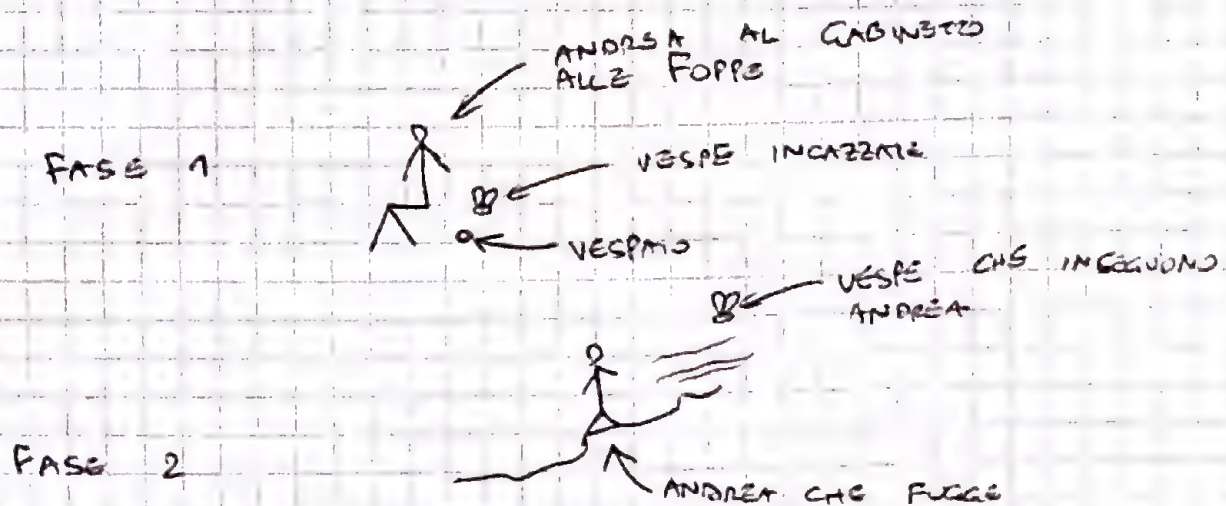 ANDREA AL GABINETTO
ALLE FOPPE
FASE 1
VESPE INCAZZATE
VESPAIO
VESPE CHE INSEGUONO
ANDREA
FASE 2
ANDREA CHE FUGGE